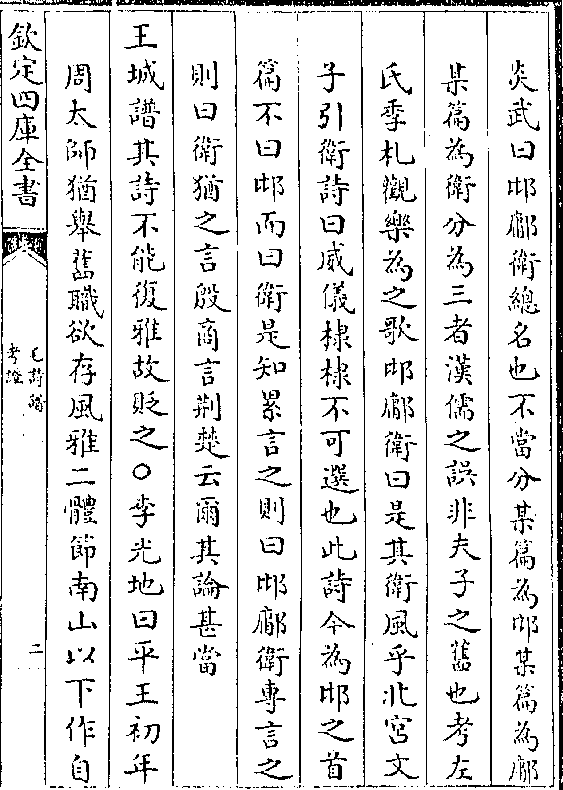 炎武曰邶鄘衛總名也不當分某篇為邶某篇為鄘
某篇為衛分為三者漢儒之誤非夫子之舊也考左
氏季札觀樂為之歌邶鄘衛曰是其衛風乎北宮文
子引衛詩曰威儀棣棣不可選也此詩今為邶之首
篇不曰邶而曰衛是知累言之則曰邶鄘衛專言之
則曰衛猶之言殷商言荆楚云爾其論甚當
王城譜其詩不能復雅故貶之○李光地曰平王初年
周太師猶舉舊職欲存風雅二體節南山以下作自
欽定四庫全書
毛詩譜
考證
二